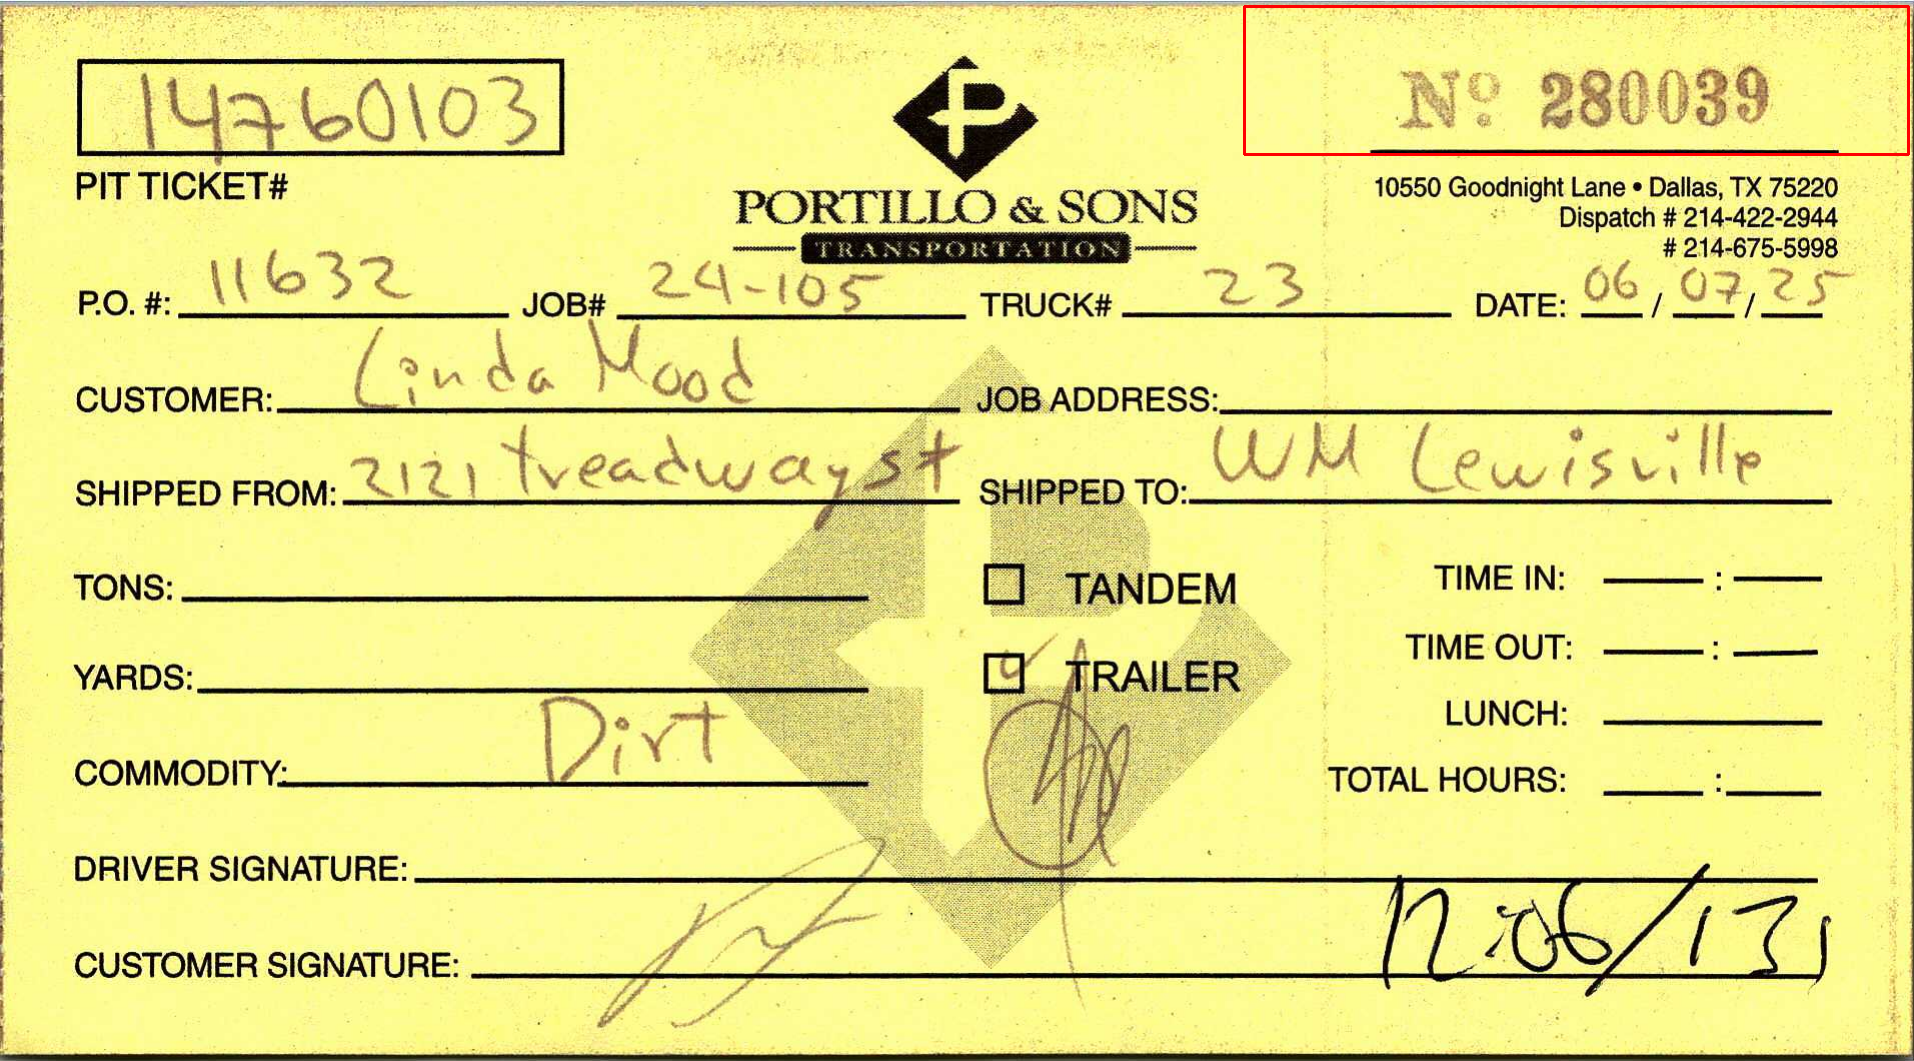 14760103
Nº 280039
PIT TICKET#
PORTILLO & SONS
TRANSPORTATION
10550 Goodnight Lane • Dallas, TX 75220
Dispatch # 214-422-2944
# 214-675-5998
P.O. #: 11632 JOB# 24-105 TRUCK# 23 DATE: 06 / 07 / 25
CUSTOMER: Linda Mood JOB ADDRESS:
SHIPPED FROM: 2121 treadway st SHIPPED TO: WM Lewisville
TONS: TANDEM TIME IN: :
YARDS: TRAILER TIME OUT: :
LUNCH:
COMMODITY: Dirt TOTAL HOURS: :
DRIVER SIGNATURE:
CUSTOMER SIGNATURE: 12:06/131